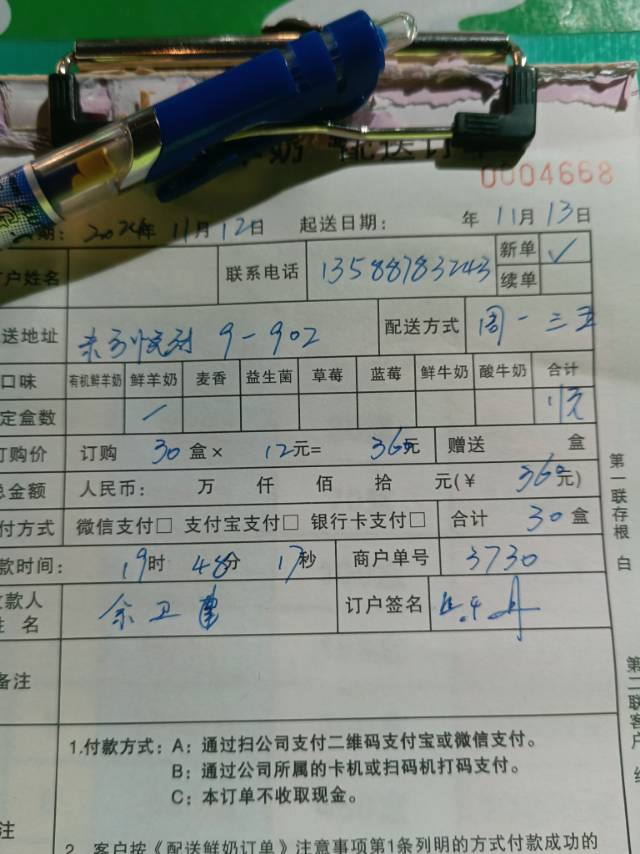 奶 配送订单
0004668
期: 2024年 11月 12日 起送日期: 年 11月 13日
订户姓名 联系电话 13588783243 新单 ✓
续单
送地址 9-902 配送方式 周一三五
口味 有机鲜羊奶 鲜羊奶 麦香 益生菌 草莓 蓝莓 鲜牛奶 酸牛奶 合计
定盒数
订购价 订购 30 盒× 12元= 360元 赠送 盒
总金额 人民币: 万 仟 佰 拾 元(¥ 360元)
付方式 微信支付□ 支付宝支付□ 银行卡支付□ 合计 30盒
款时间: 19时 48分 17秒 商户单号 3730
收款人 余卫 订户签名
姓名
备注
1.付款方式: A: 通过扫公司支付二维码支付宝或微信支付。
B: 通过公司所属的卡机或扫码机打码支付。
C: 本订单不收取现金。
注
2. 客户按《配送鲜奶订单》注意事项第1条列明的方式付款成功的
第一联存根 白
第二联客户 红